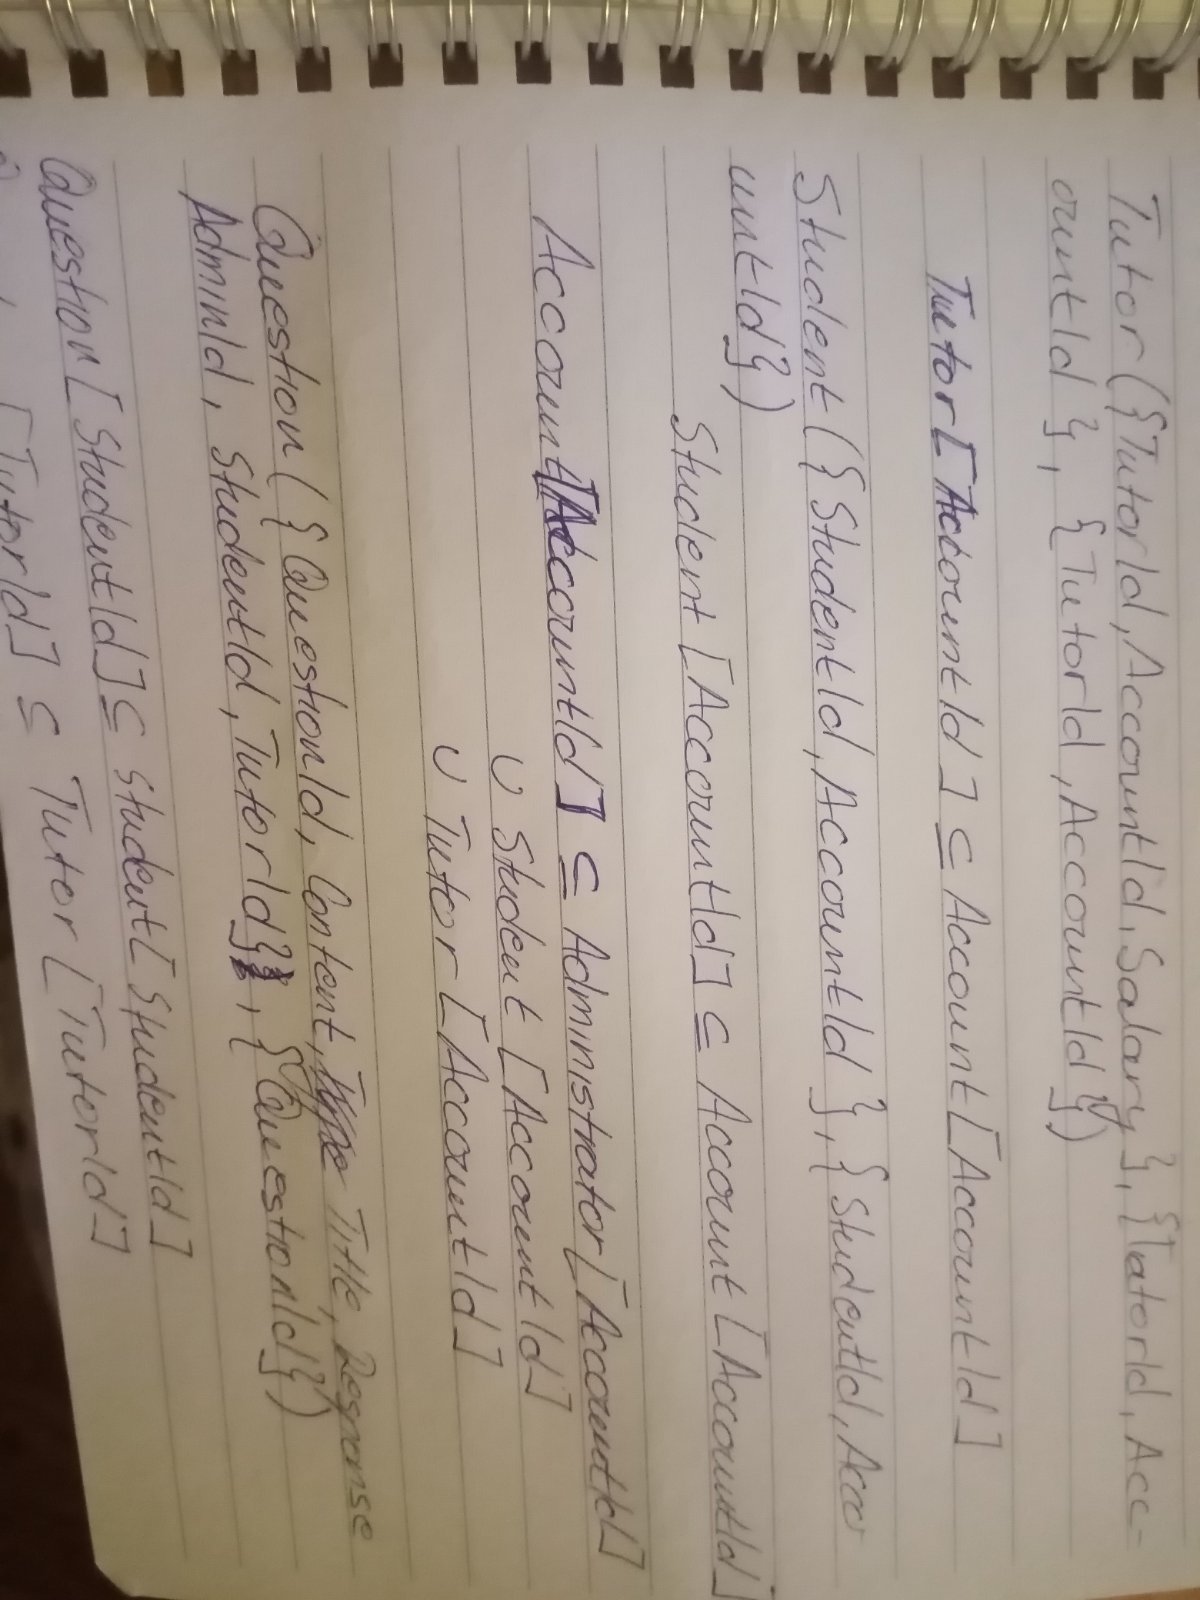 Tutor({TutorId, AccountId, Salary}, {TutorId, Acc-
ountId}, {TutorId, AccountId})
Tutor[AccountId] ⊆ Account[AccountId]
Student({StudentId, AccountId}, {StudentId, Acco
untId})
Student[AccountId] ⊆ Account[AccountId]
Account[AccountId] ⊆ Administrator[AccountId]
∪ Student[AccountId]
∪ Tutor[AccountId]
Question({QuestionId, Content, Title, Response
AdminId, StudentId, TutorId}, {QuestionId})
Question[StudentId] ⊆ Student[StudentId]
[TutorId] ⊆ Tutor[TutorId]